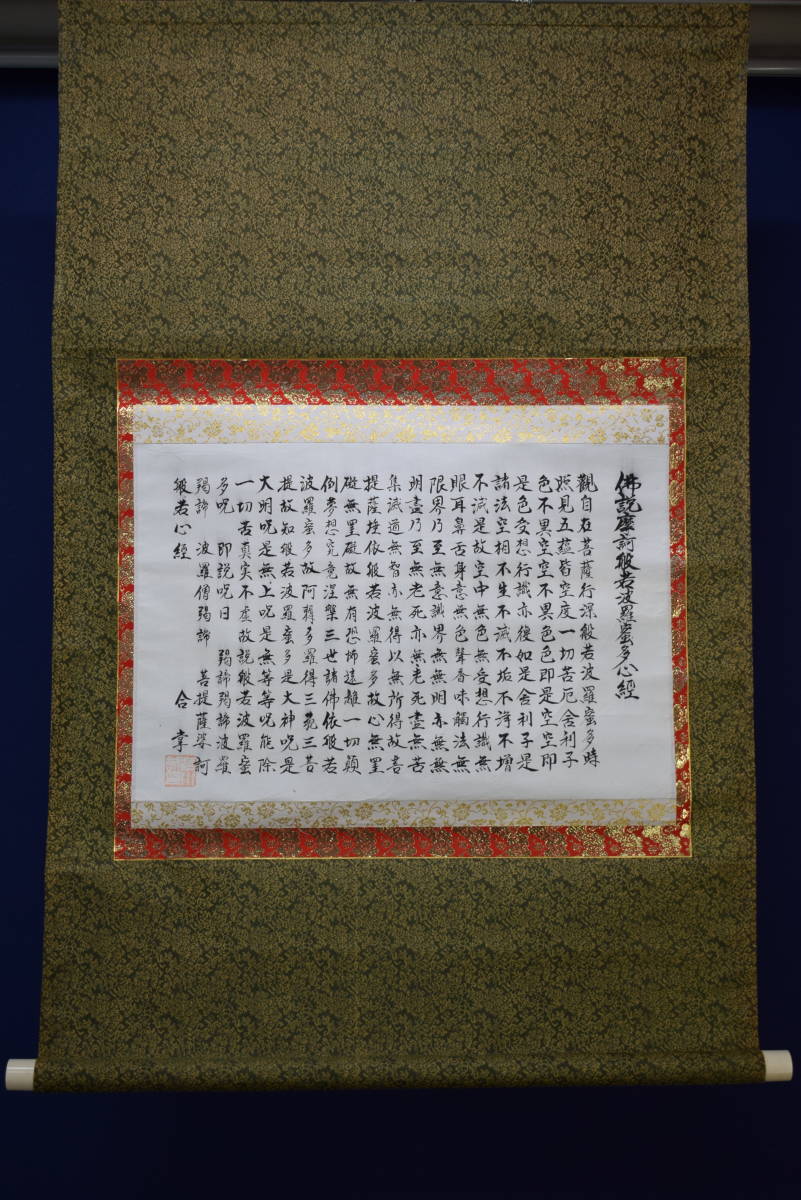 佛説摩訶般若波羅蜜多心經
觀自在菩薩行深般若波羅蜜多時
照見五蘊皆空度一切苦厄舎利子
色不異空空不異色色即是空空即
是色受想行識亦復如是舎利子是
諸法空相不生不滅不垢不浄不増
不滅是故空中無色無受想行識無
眼耳鼻舌身意無色聲香味觸法無
限界乃至無意識界無無明亦無無
明盡乃至無老死亦無老死盡無苦
集滅道無智亦無得以無所得故菩
提薩埵依般若波羅蜜多故心無罣
礙無罣礙故無有恐怖遠離一切顛
倒夢想究竟涅槃三世諸佛依般若
波羅蜜多故阿耨多羅得三藐三菩
提故知般若波羅蜜多是大神呪是
大明呪是無上呪是無等等呪能除
一切苦真実不虚故説般若波羅蜜
多呪 即説呪曰 羯諦羯諦波羅
羯諦 波羅僧羯諦 菩提薩婆訶
般若心經 合掌